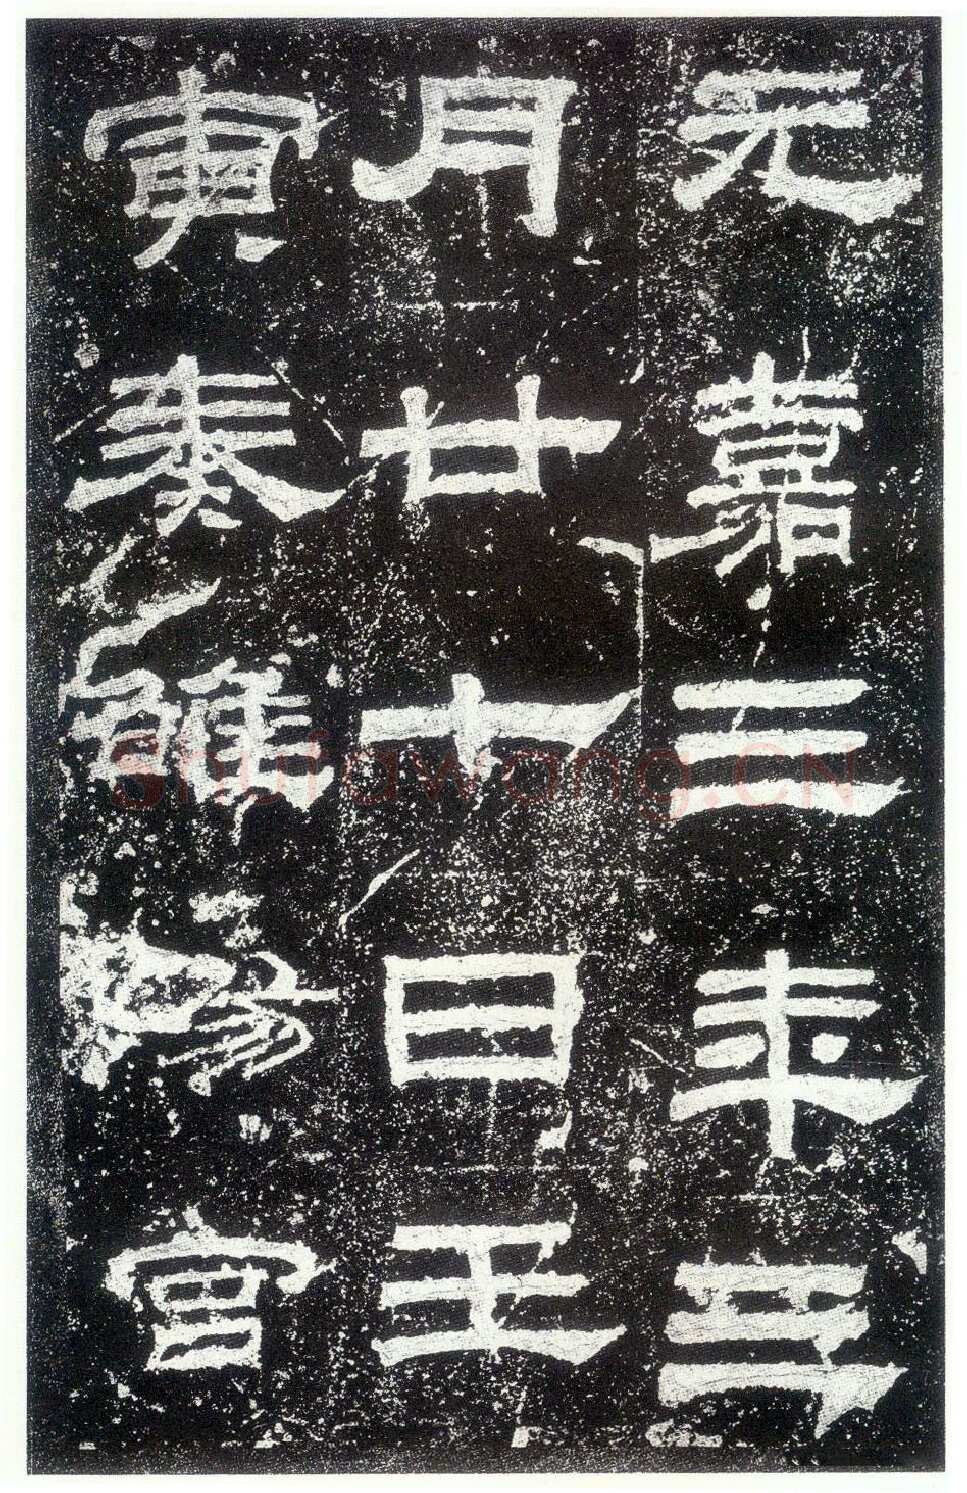 元嘉三年三
月廿七日壬
寅奏雒陽宮
Shufawang.CN